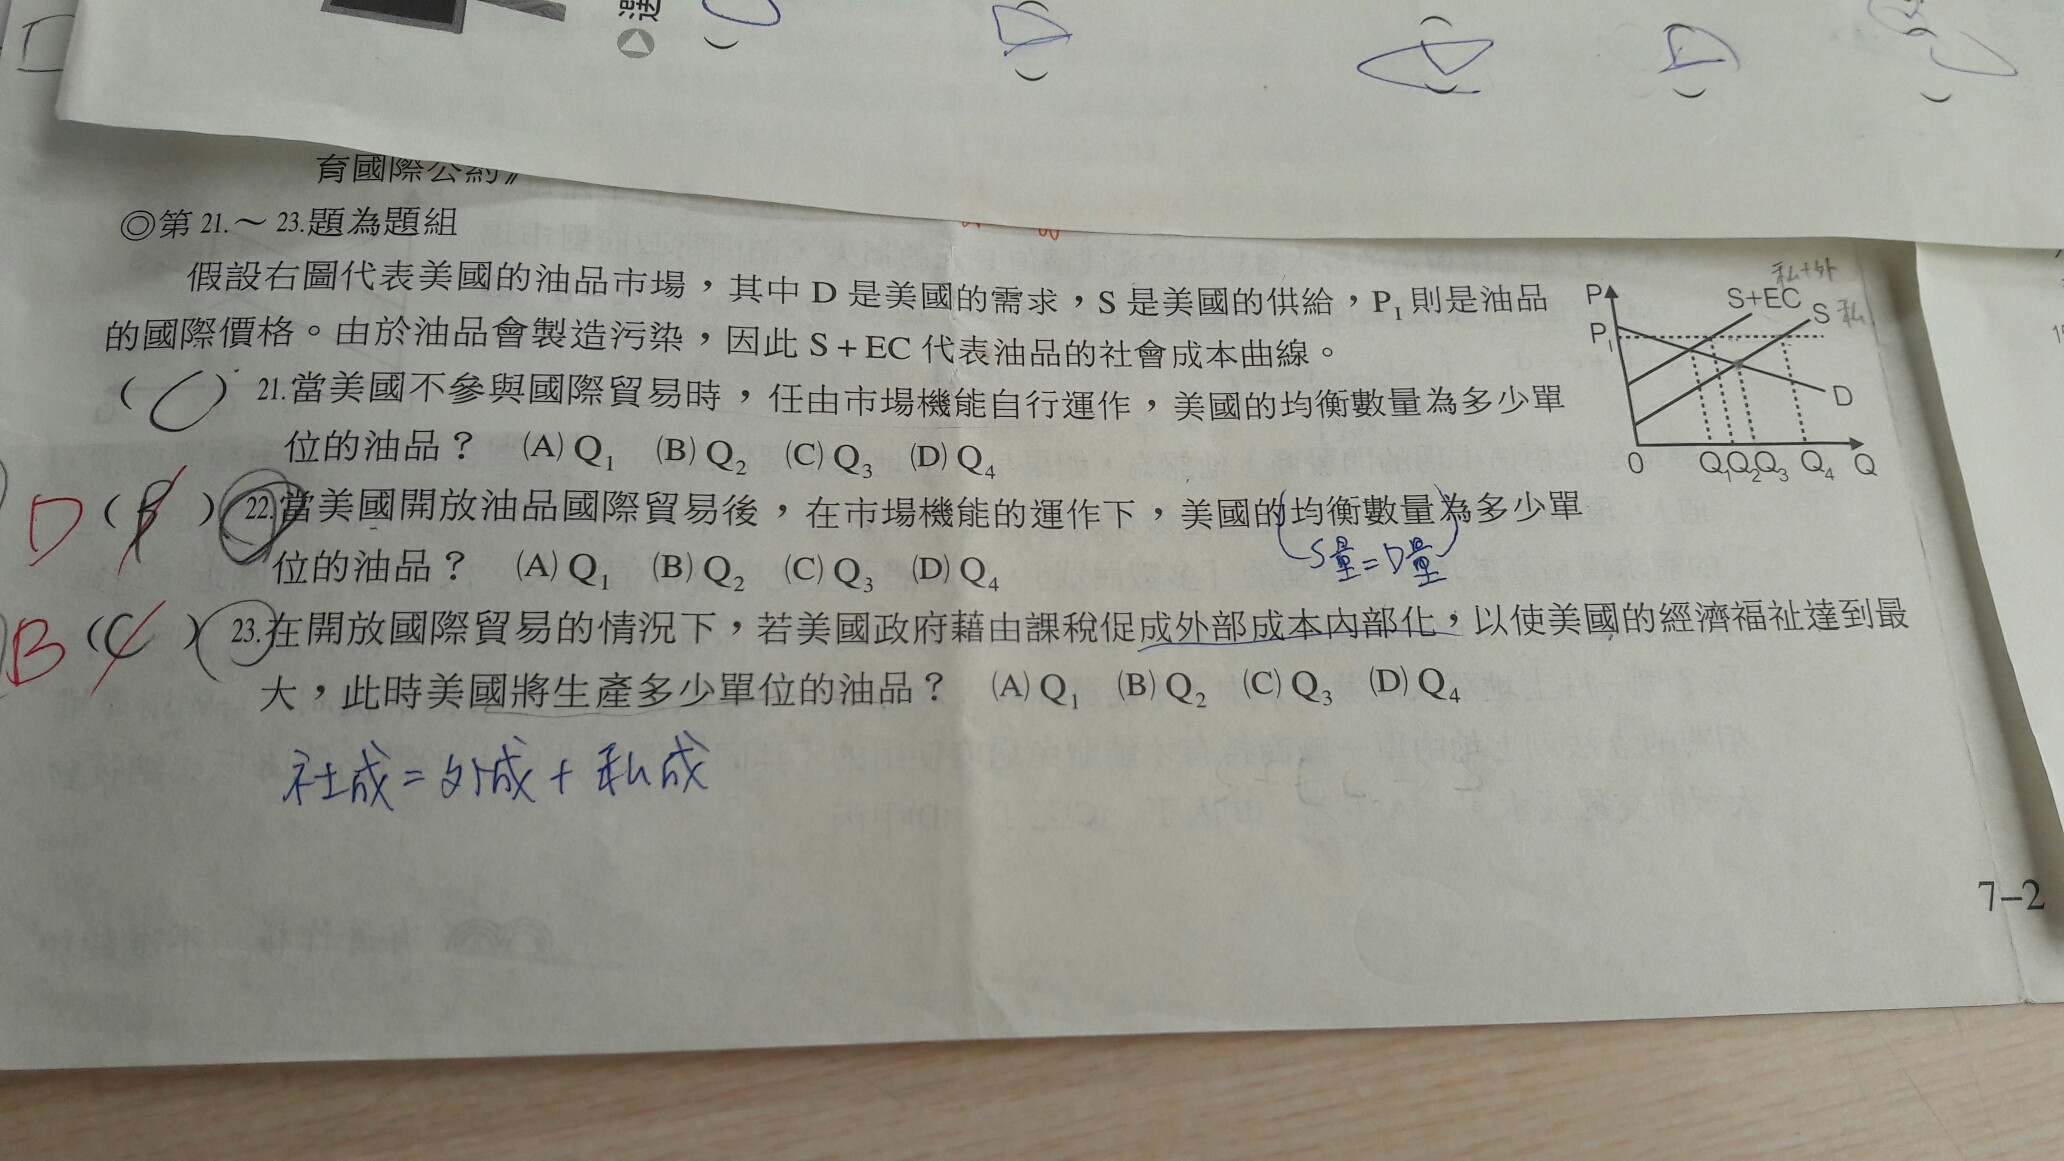 選
育國際公約》
◎第 21.～ 23.題為題組
假設右圖代表美國的油品市場，其中 D 是美國的需求，S 是美國的供給，P_I 則是油品
的國際價格。由於油品會製造污染，因此 S＋EC 代表油品的社會成本曲線。
( C ) 21.當美國不參與國際貿易時，任由市場機能自行運作，美國的均衡數量為多少單
位的油品？ (A) Q1 (B) Q2 (C) Q3 (D) Q4
D ( B ) 22.當美國開放油品國際貿易後，在市場機能的運作下，美國的均衡數量為多少單
S量=D量
位的油品？ (A) Q1 (B) Q2 (C) Q3 (D) Q4
B ( C ) 23.在開放國際貿易的情況下，若美國政府藉由課稅促成外部成本內部化，以使美國的經濟福祉達到最
大，此時美國將生產多少單位的油品？ (A) Q1 (B) Q2 (C) Q3 (D) Q4
社成=外成+私成
私+外
P S+EC
S 私
P_I
D
0 Q1 Q2 Q3 Q4 Q
7–2